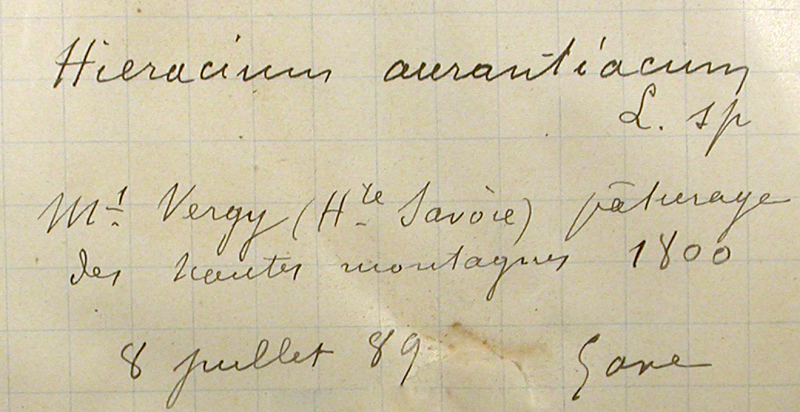 Hieracium aurantiacum
L. sp
Mt. Vergy (Hte Savoie) pâturage
des hautes montagnes 1800
8 juillet 89 Gave